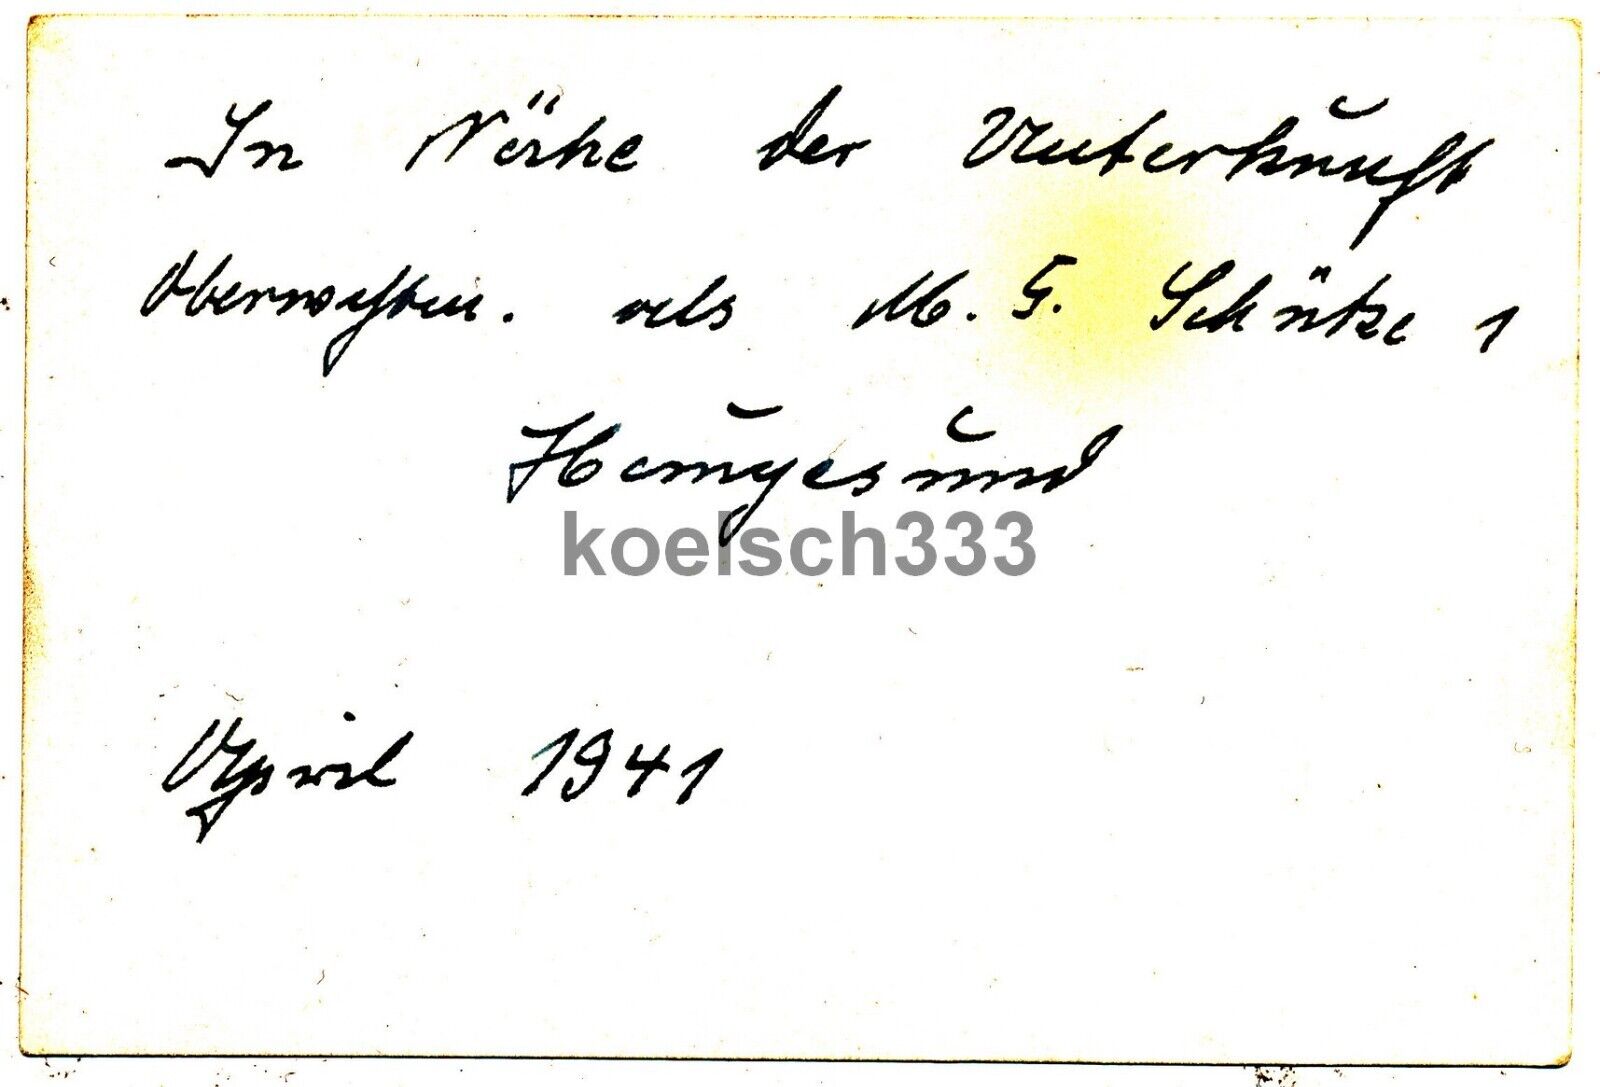 In Nähe der Unterkunft
als M. G. Schütze 1
Haugesund
koelsch333
April 1941